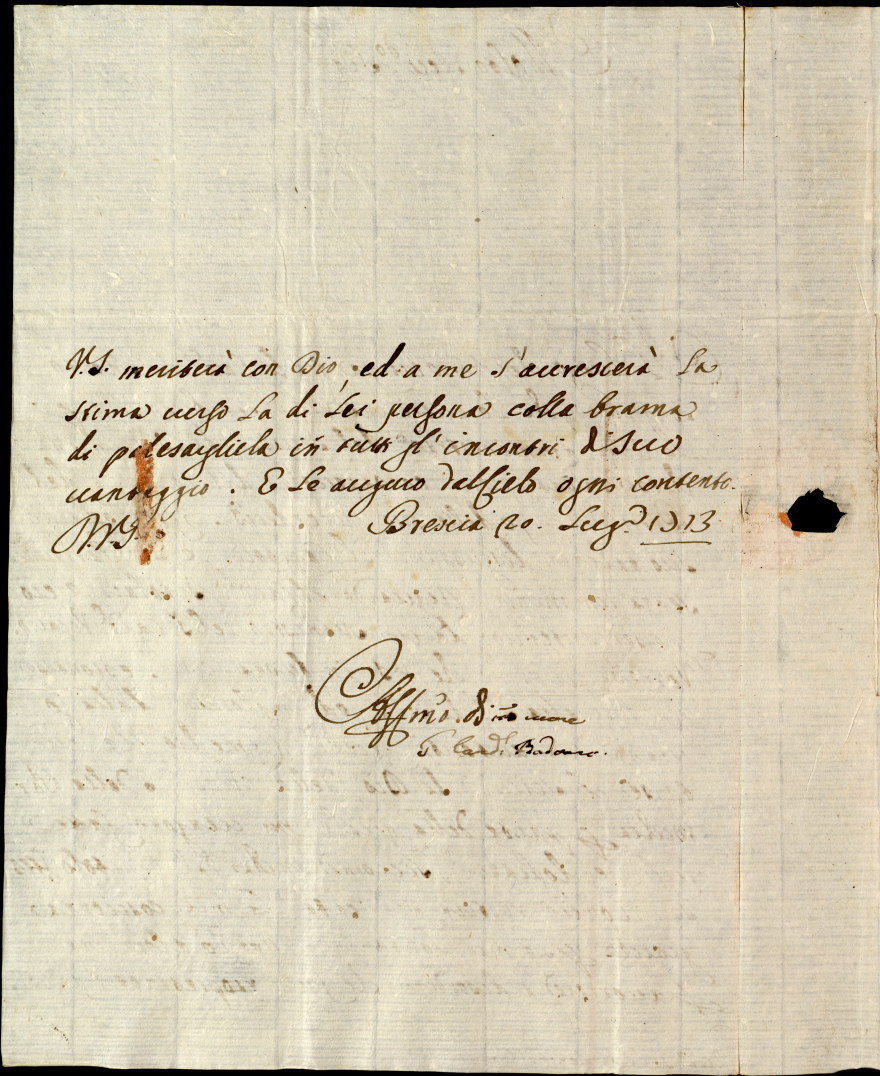 V.S. meriterà con Dio, ed a me s'accrescerà la
stima verso la di Lei persona colla brama
di palesargliela in tutti gl'incontri di Suo
vantaggio. E Le auguro dal Cielo ogni contento.
Brescia 20. Lug.º 1713
Aff.mo di cuore
Card.l Badoaro.